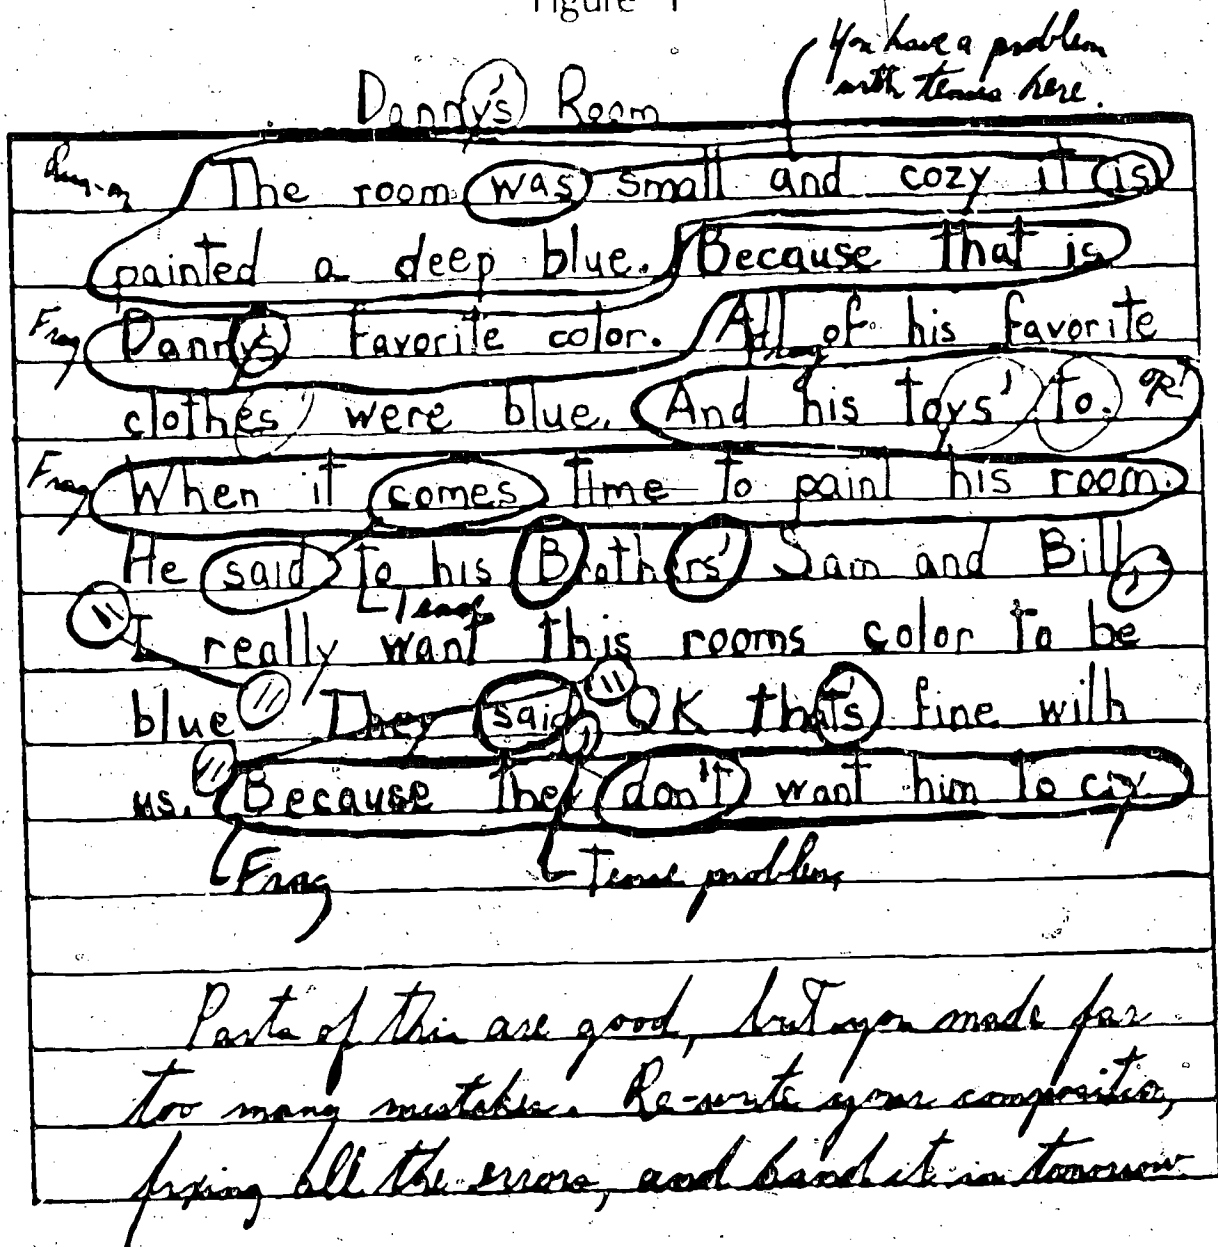 Figure 1
You have a problem
with tenses here.
Danny's Room
Run-on
The room was small and cozy it is
painted a deep blue. Because that is
Frag
Danny's favorite color. All of his favorite
Frag
clothes' were blue. And his toys' to.
Frag
When it comes time to paint his room.
He said to his Brothers' Sam and Bill,
Tense
" I really want this rooms color to be
blue " They said, " OK that's fine with
us. " Because they don't want him to cry
Frag
Tense problem
Parts of this are good, but you made far
too many mistakes. Re-write your composition,
fixing all the errors, and hand it in tomorrow.